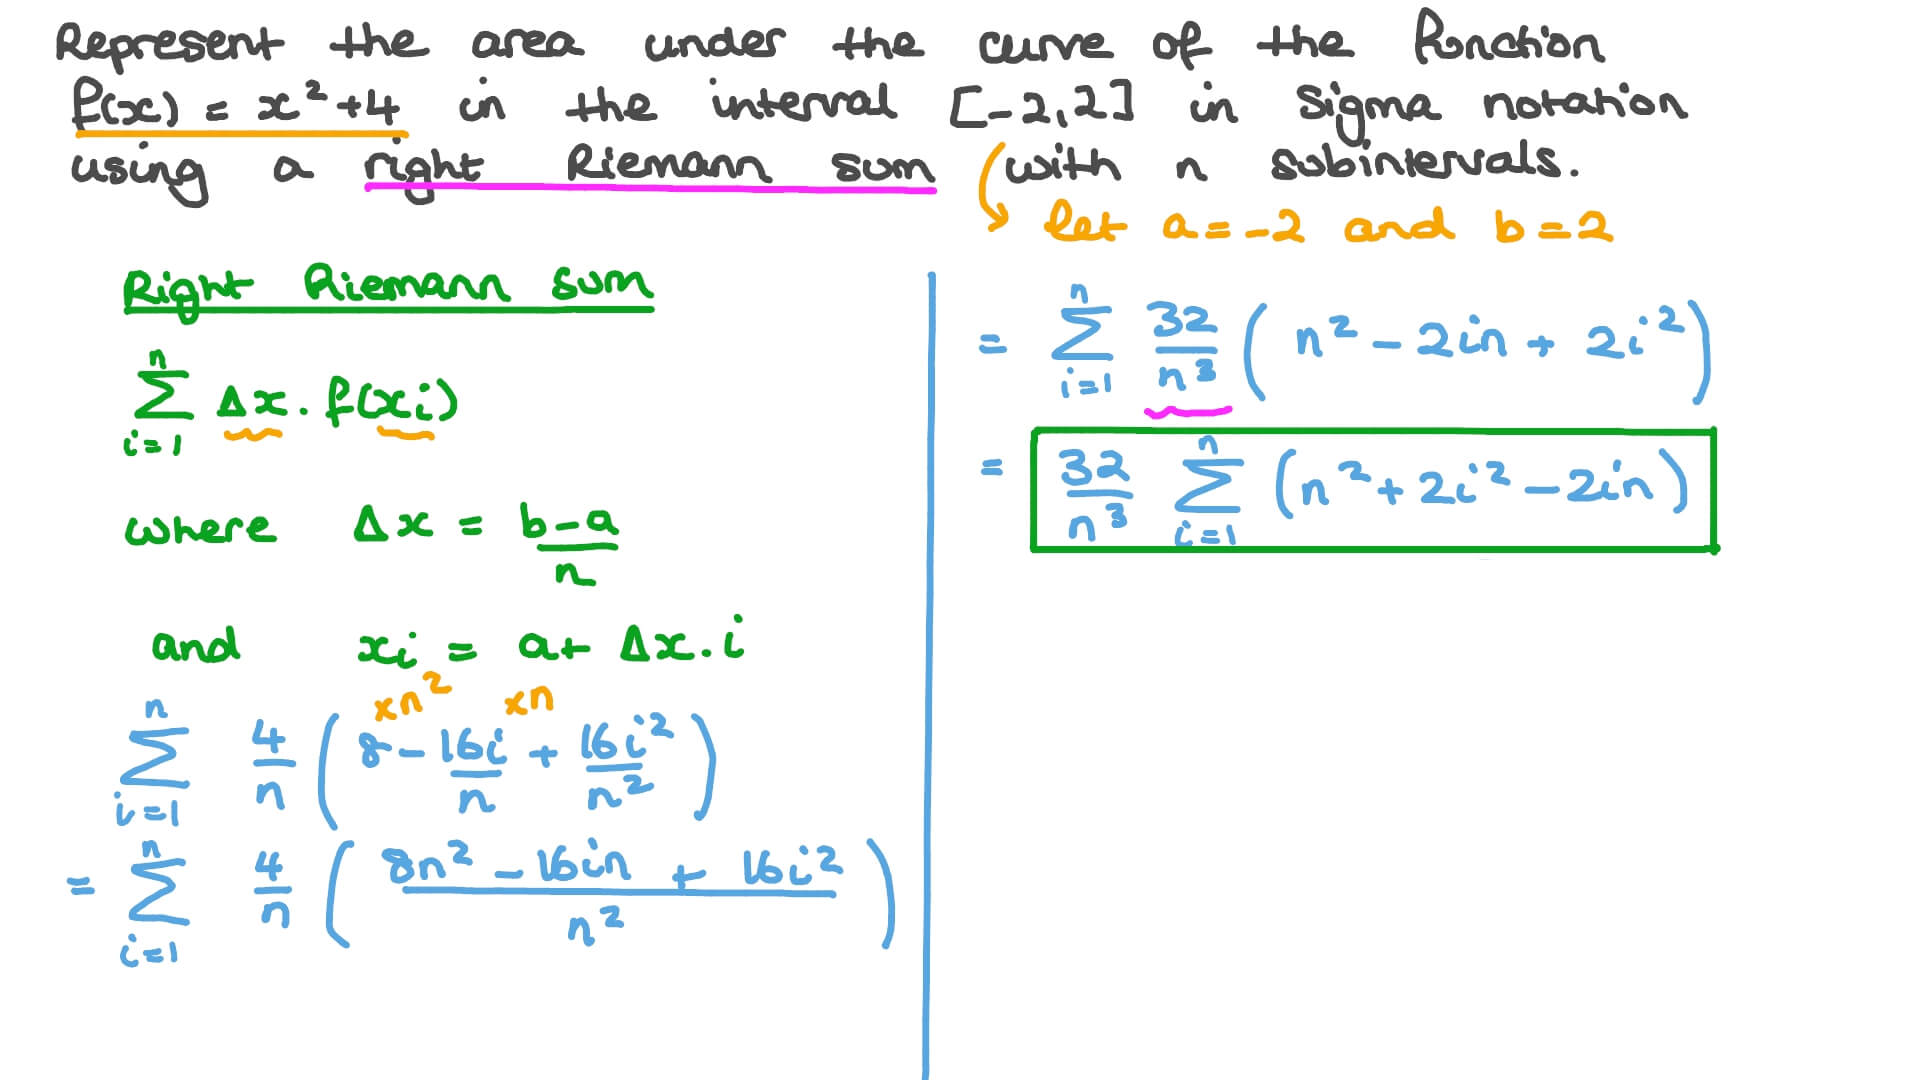 Represent the area under the curve of the function
f(x) = x²+4 in the interval [-2,2] in sigma notation
using a right Riemann sum with n subintervals.
let a=-2 and b=2
Right Riemann sum
n
Σ Δx. f(xi)
i=1
where Δx = b-a
n
and xi = a+ Δx.i
×n² ×n
n
Σ 4/n ( 8 - 16i/n + 16i²/n² )
i=1
n
= Σ 4/n ( 8n² - 16in + 16i² / n² )
i=1
n
= Σ 32/n³ ( n² - 2in + 2i² )
i=1
n
= 32/n³ Σ (n²+2i²-2in)
i=1